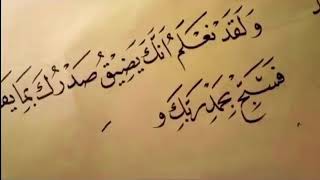 وَلَقَدْ نَعْلَمُ أَنَّكَ يَضِيقُ صَدْرُكَ بِمَا
فَسَبِّحْ بِحَمْدِ رَبِّكَ و